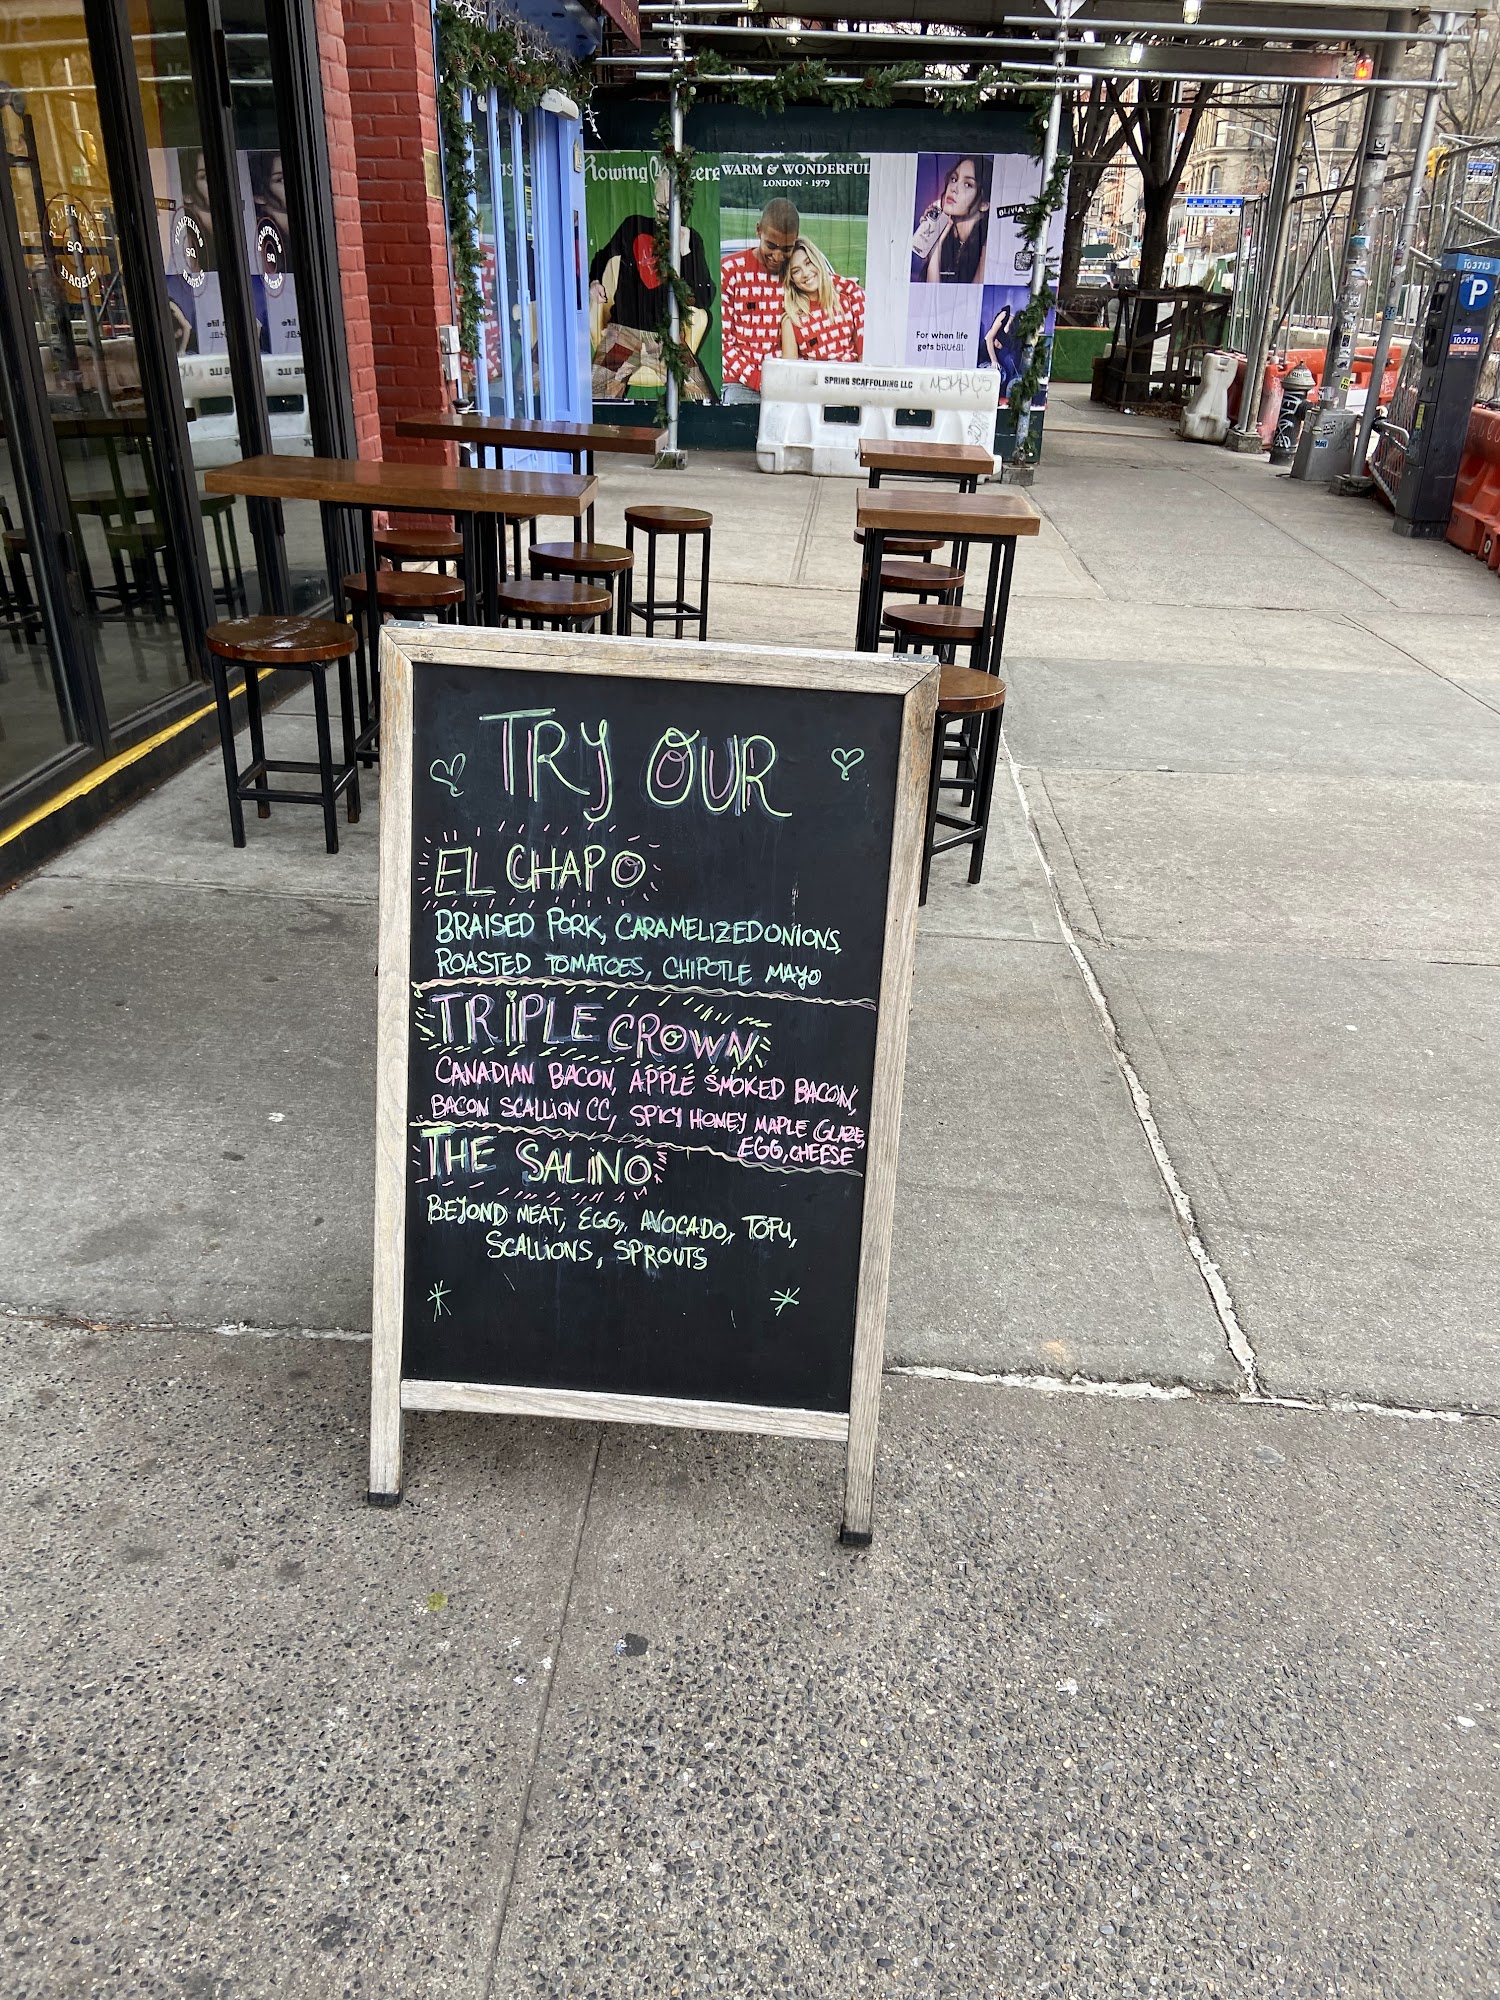 WARM & WONDERFUL
LONDON · 1979
For when life
gets bRUtal.
SPRING SCAFFOLDING LLC
TOMPKINS
SQ
BAGELS
TOMPKINS
SQ
BAGELS
TOMPKINS
SQ
BAGELS
BUS LANE
103713
P
103713
TRY OUR
EL CHAPO
BRAISED PORK, CARAMELIZED ONIONS,
ROASTED TOMATOES, CHIPOTLE MAYO
TRIPLE CROWN
CANADIAN BACON, APPLE SMOKED BACON,
BACON SCALLION CC, SPICY HONEY MAPLE GLAZE,
EGG, CHEESE
THE SALINO
BEYOND MEAT, EGG, AVOCADO, TOFU,
SCALLIONS, SPROUTS